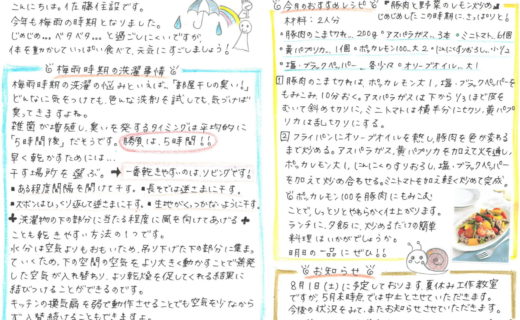 こんにちは。佐藤住設です。
今年も梅雨の時期となりました。
じめじめ… ベタベタ… と過ごしにくいですが、
体を動かしていっぱい食べて、元気にすごしましょう!
梅雨時期の洗濯事情
梅雨時期の洗濯の悩みといえば、"部屋干しの臭い!"
どんなに気をつけても、色んな洗剤を試しても、気づけば
臭ってきますよね。
雑菌が増殖し、臭いを発するタイミングは平均的に
「5時間後」だそうです。勝負は、5時間!!
早く乾かすためには…
干す場所を選ぶ。→一番乾きやすいのは、リビングです!
■ある程度間隔を開けて干す。■長そでは逆さまに干す。
■ズボンはひっくり返して逆さまに干す。■生地がくっつかないように干す。
洗濯物の下の部分に当たる程度に風を向けてあげる
ことも乾きやすい方法の1つです。
水分は空気よりもおもいため、吊り下げた下の部分に集まっ
ていくため、下の空間の空気をより大きく動かすことで蒸発
した空気が入れ替わり、より乾燥を促してくれる結果に
結びつけることができるのです。
キッチンの換気扇を弱で動作させることでも空気を
ず入替続けることもできますよ。
今月のおすすめレシピ
豚肉と野菜のレモン炒め
じめじめしたこの時期に、さっぱりと!
材料:2人分
豚肉のこま切れ…200g アスパラガス…3本 ミニトマト…6個
黄パプリカ…1個 ポッカレモン100…大2 にんにくすりおろし…小1/2
塩・ブラックペッパー…各少々 オリーブオイル…大1
1 豚肉のこま切れは、ポッカレモン大1、塩・ブラックペッパーを
もみこみ、10分おく。アスパラガスは下から1/3ほど皮を
むいて斜めセクリに、ミニトマトは横半分にセクリ、黄パプリ
カは乱セクリにする。
2 フライパンにオリーブオイルを熱し、豚肉を色が変わる
まで炒める。アスパラガス、黄パプリカを加えて火を通し、
ポッカレモン大1、にんにくのすりおろし、塩・ブラックペッパー
を加えて炒め合わせる。ミニトマトを加え軽く炒めて完成。
ポッカレモン100を豚肉にもみこむ
ことで、しっとりとやわらかく仕上がります。
ランチに、夕飯に、炒めるだけの簡単
料理はいかがでしょうか。
明日の一品にぜひ!!
お知らせ
8月1日(土)に予定しております、夏休み工作教室
ですが、5月末時点では中止とさせていただきます。
今後の状況をみて、またお知らせさせていただきます。